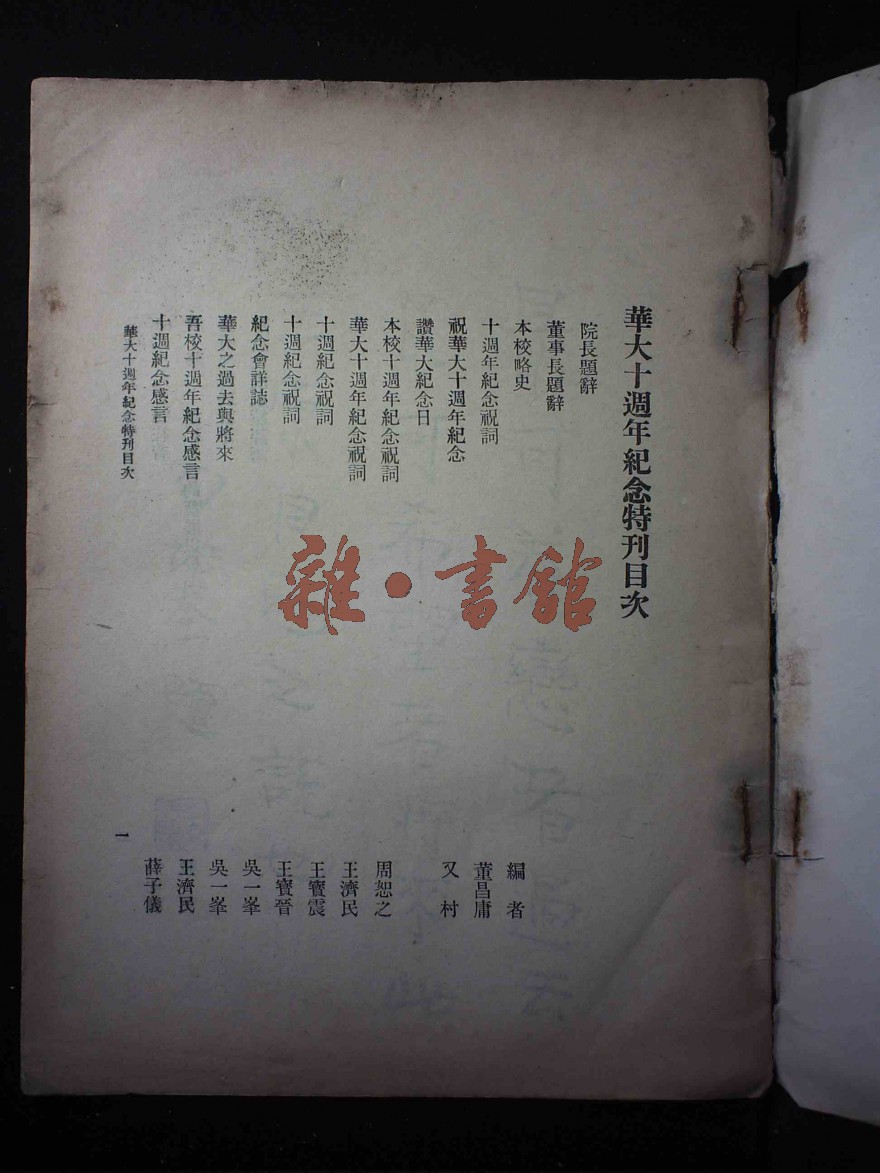 華大十週年紀念特刊目次
院長題辭
董事長題辭
本校略史 編者
十週年紀念祝詞 董昌庸
祝華大十週年紀念 又村
讚華大紀念日
本校十週年紀念祝詞 周恕之
華大十週年紀念祝詞 王濟民
十週紀念祝詞 王寶震
十週紀念祝詞 王寶晉
紀念會詳誌 吳一峯
華大之過去與將來 吳一峯
吾校十週年紀念感言 王濟民
十週紀念感言 薛子儀
華大十週年紀念特刊目次 一
雜●書館